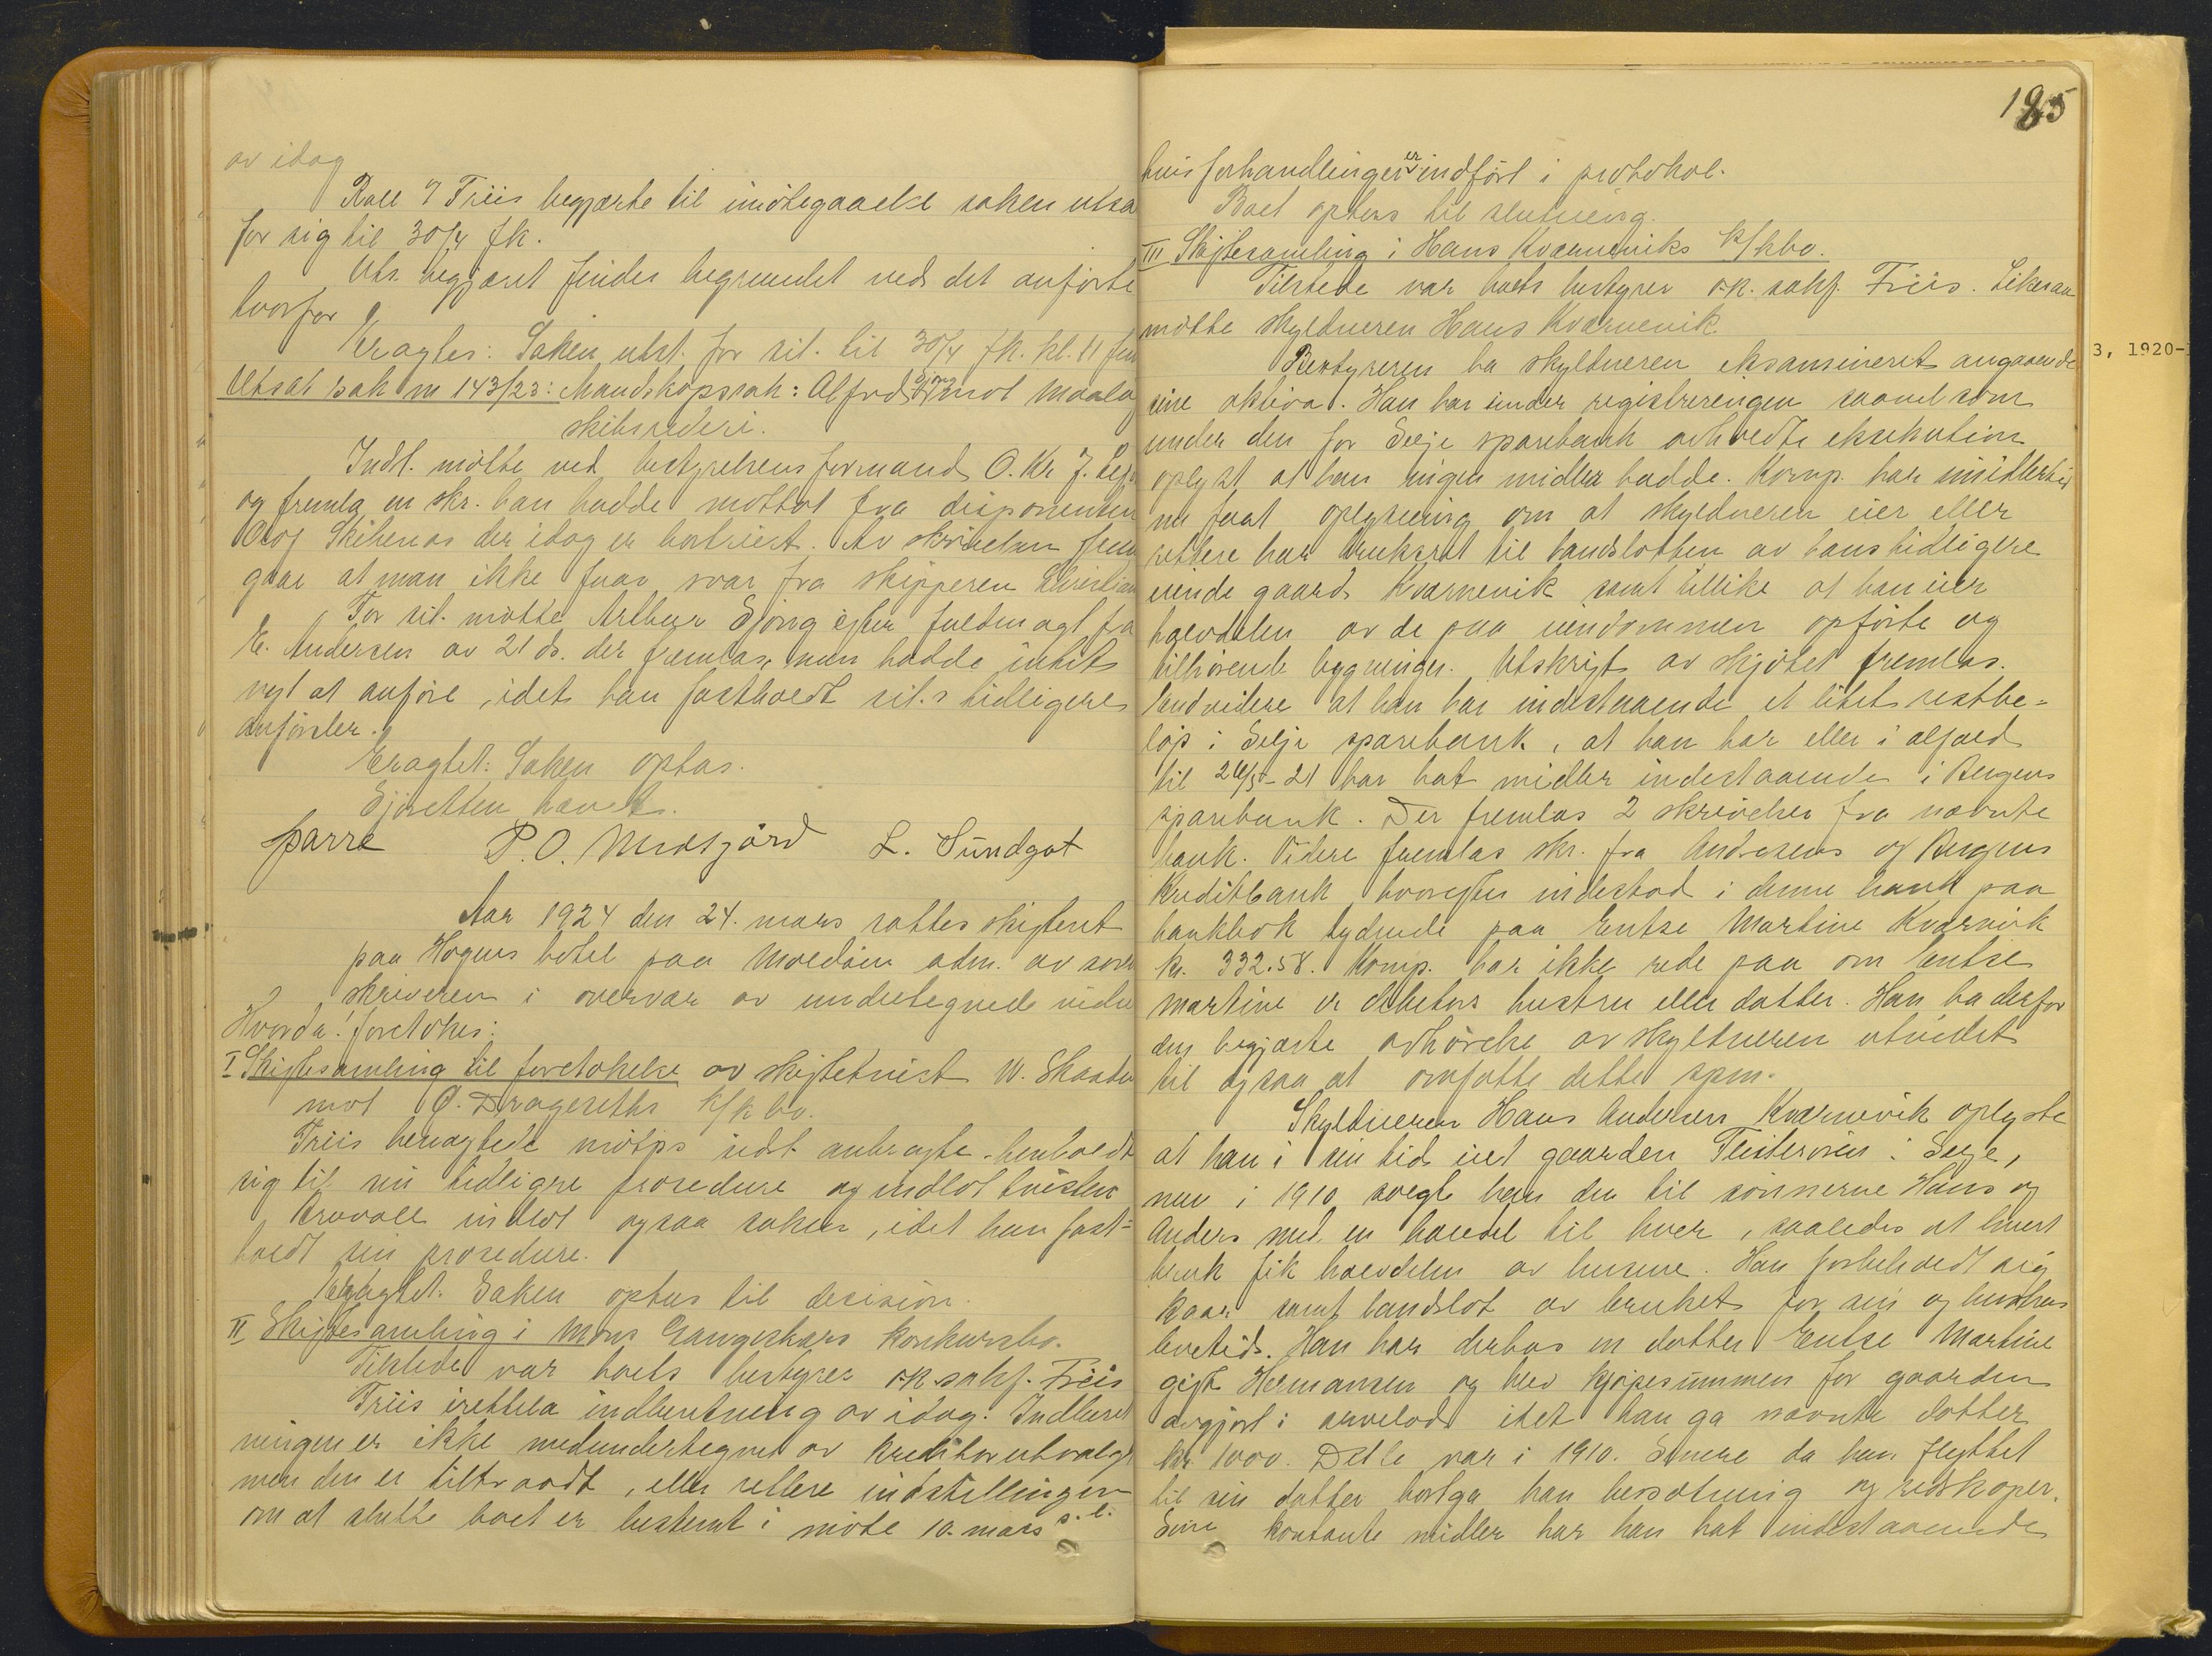 av idag
Rall & Friis begjærte til imötegaaelse saken utsa
for sig til 30/4 fk.
Uts. begjæret findes begrundet ved det anförte
hvorfor
Eragtes: Saken utst. for sit. til 30/4 fk. kl. 11 fm
Utsat sak nr 143/23: Mandskapssak: Alfred mot Maalöy
skibsrederi.
Indst. mötte ved bestyrelsens formand O. Kr. J.
og fremla en skr. han hadde mottat fra disponenten
Olof Skibenes der idag er bortreist. Av skrivelsen frem
gaar at man ikke faar svar fra skipperen Christian
For sit. mötte Arthur Sjöng efter fuldmagt fra
E. Andersen av 21 ds. der fremlas, men hadde intet
nyt at anföre, idet han fastholdt sit.s tidligere
anförsler.
Eragtet: Saken optas.
Sjöretten hævet.
Sparre P.O. Midtgård L. Sundgot
Aar 1924 den 24. mars sattes skifteret
paa Hagens hotel paa Moldöen adm. av soren
skriveren i overvær av undertegnede vidne
Hvorda! foretokes:
I Skiftesamling til foretakelse av skiftetvist W. Skaate
mot O. Drageseths k/k bo.
Friis benægtede motps sidst anbragte. henholdt
sig til sin tidligere prosedure og indlot tvisten
Krovoll indlot ogsaa saken, idet han fast=
holdt sin prosedure.
Eragtet: Saken optas til decision.
II Skiftesamling i Mons Gangeskars konkursbo.
Tilstede var boets bestyrer o.r.sakf. Friis
Friis irettela indberetning av idag. Indberet
ningen er ikke medundertegnet av kreditorutvalget
men den er tiltraadt, eller rettere indstillingen
om at slutte boet er bestemt i möte 10. mars s.l.
185
hvis forhandlinger er indfört i protokol.
Boet optas til slutning.
III Skiftesamling i Hans Kvarneviks k/kbo.
Tilstede var boets bestyrer o.r. sakf. Friis. Likesaa
mötte skyldneren Hans Kvarnevik.
Bestyreren ba skyldneren eksamineret angaaende
sine aktiva. Han har under registreringen saavel som
under den for Selje sparebank avholdte eksekution
oplyst at han ingen midler hadde. Komp. har imidlertid
nu faat oplysning om at skyldneren eier eller
rettere har bruksret til landslotten av hans tidligere
eiende gaard Kvarnevik samt tillike at han eier
halvdelen av de paa eiendommen opförte og
tilhörende bygninger. Utskrift av skjötet fremlas.
Endvidere at han har indestaaende et litet restbe=
löp i Selje sparebank, at han har eller i alfald
til 26/5-21 har hat midler indestaaende i Bergens
sparebank. Der fremlas 2 skrivelser fra nævnte
bank. Videre fremlas skr. fra Andresens og Bergens
Kreditbank hvorefter indestod i denne bank paa
bankbok lydende paa Entse Martine Kvarnvik
kr. 332.58. Komp. har ikke rede paa om Entse
Martine er debitors hustru eller datter. Han ba derfor
den begjærte avhörelse av skyldneren utvidet
til ogsaa at omfatte dette spm.
Skyldneren Hans Andersen Kvarnevik oplyste
at han i sin tid eiet gaarden i Selje,
men i 1910 solgte han den til sönnerne Hans og
Anders med en halvdel til hver, saaledes at hvert
bruk fik halvdelen av husene. Han forbeholdt sig
kaar samt landslot av bruket for sin og hustrus
levetid. Han har derhos en datter Entse Martine
gift Hermansen og blev kjöpesummen for gaarden
avgjort i arvelod idet han ga nævnte datter
kr. 1000. Dette var i 1910. Senere da han flyttet
til sin datter bortga han besætning og redskaper.
Sine kontante midler har han hat indestaaende
3, 1920-